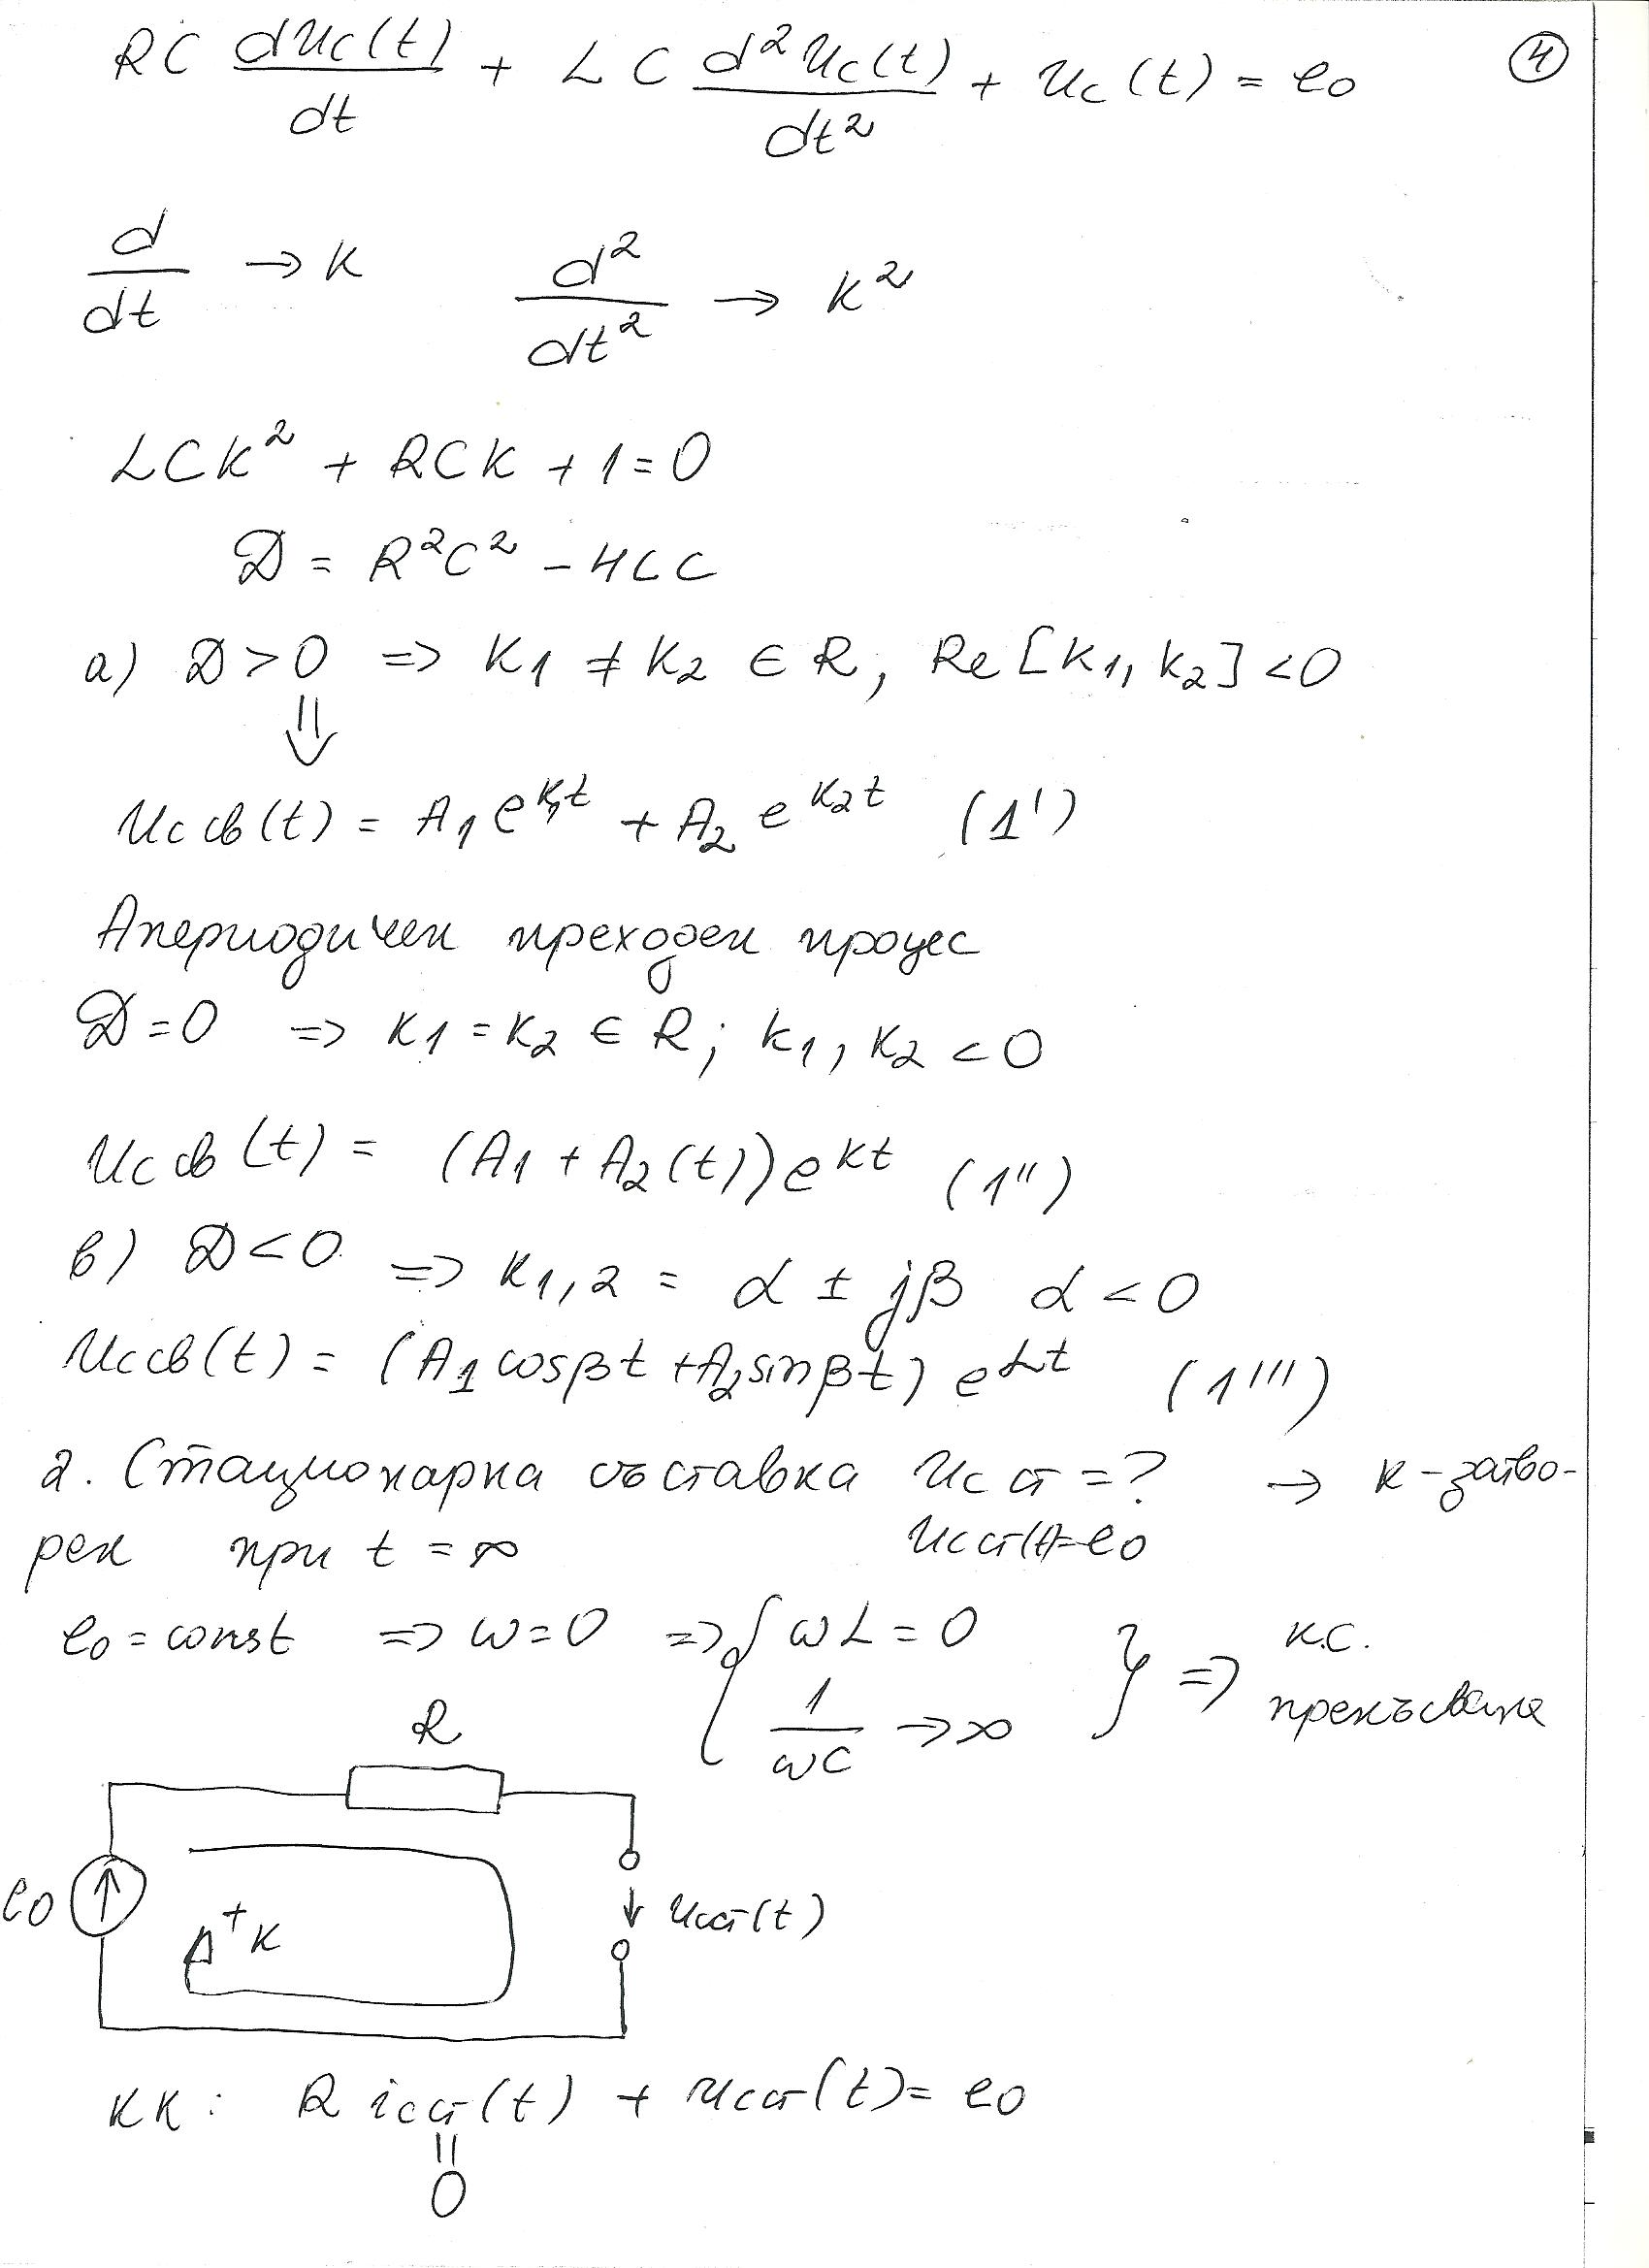 RC duc(t)/dt + LC d²uc(t)/dt² + uc(t) = e0
4
d/dt → k d²/dt² → k²
LCk² + RCk + 1 = 0
D = R²C² - 4LC
а) D > 0 => k1 ≠ k2 ∈ R, Re[k1, k2] < 0
⇓
uc св(t) = A1 e^k1t + A2 e^k2t (1')
Апериодичен преходен процес
D = 0 => k1 = k2 ∈ R; k1, k2 < 0
uc св(t) = (A1 + A2(t)) e^kt (1'')
в) D < 0 => k1,2 = α ± jβ α < 0
uc св(t) = (A1 cosβt + A2 sinβt) e^αt (1''')
2. Стационарна съставка uc ст = ? → к-затво-
рен при t = ∞ uc ст(t) = e0
e0 = const => ω = 0 => { ωL = 0 } => к.с.
1/ωC → ∞ прекъсване
R
e0
+ K
ucст(t)
KK: R icст(t) + ucст(t) = e0
||
0